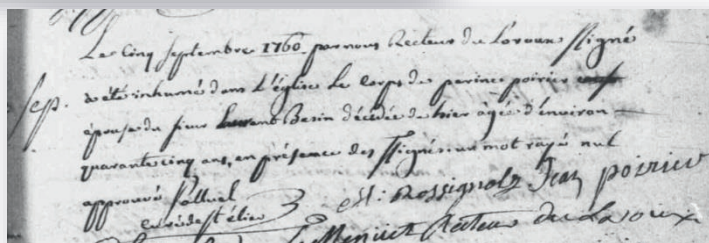 Le cinq septembre 1760 par nous Recteur du Loroux ssigné
Sep. a été inhumé dans l'église le corps de perinne poirier
épouse du sieur Laurent Besin décédée de hier âgée d'environ
quarante cinq ans, en présence des ssignés: un mot rayé nul
approuvé
M: Rossignol Jean poirier
curé de st élier
Recteur du Loroux